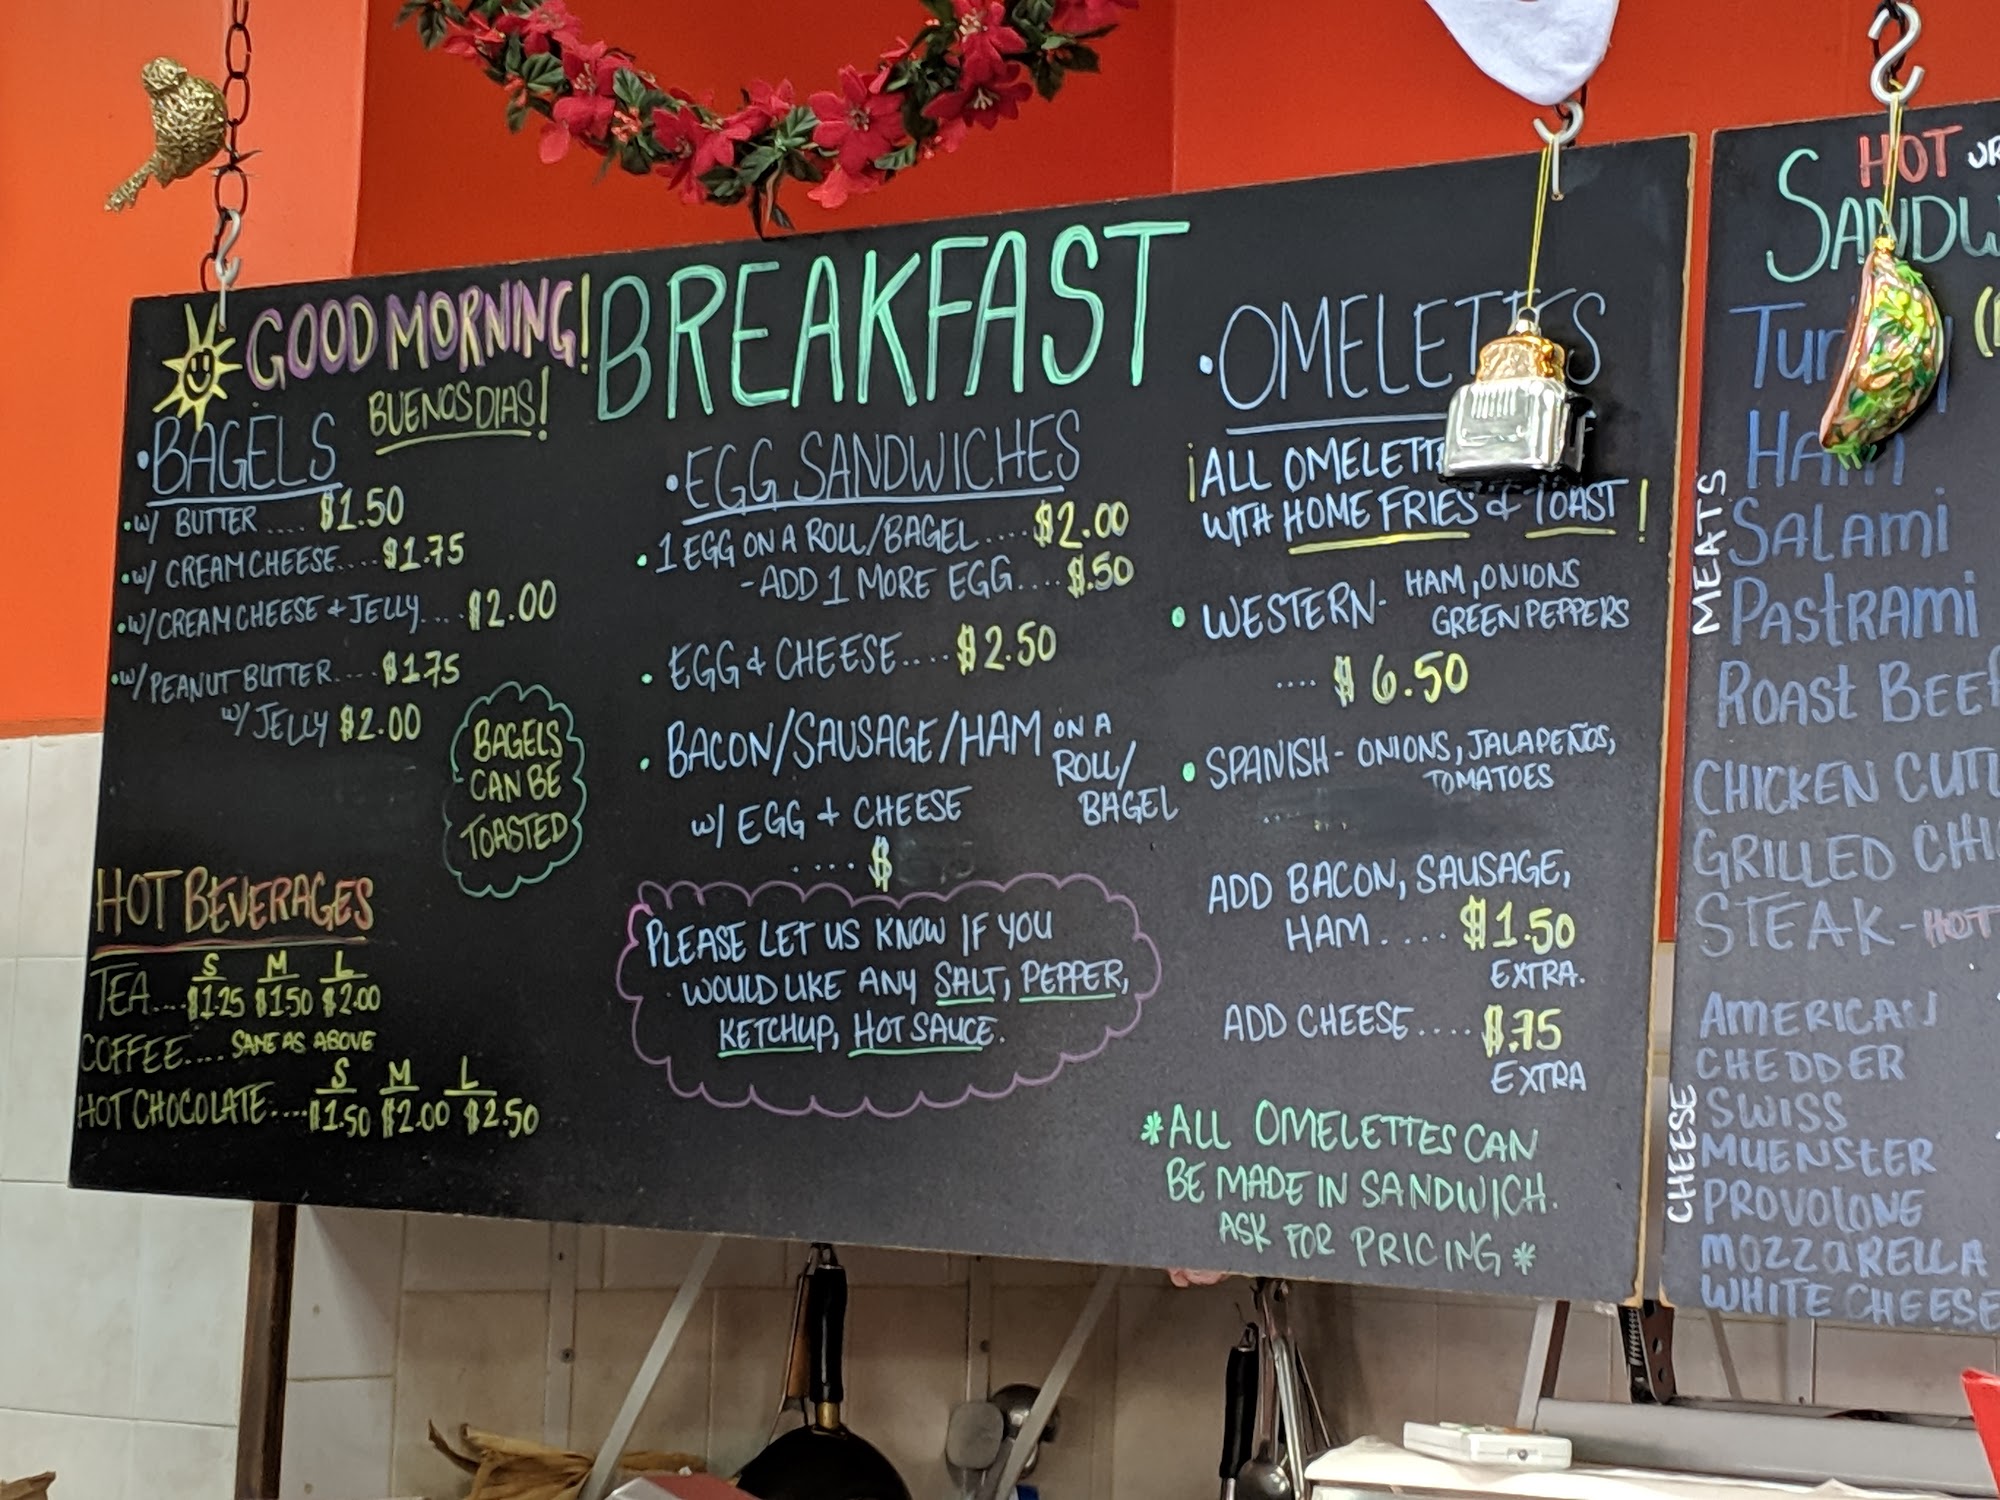 GOOD MORNING!
BUENOS DIAS!
BREAKFAST
•BAGELS
•W/ BUTTER .... $1.50
•W/ CREAM CHEESE.... $1.75
•W/ CREAM CHEESE + JELLY.... $2.00
•W/ PEANUT BUTTER.... $1.75
W/ JELLY $2.00
BAGELS
CAN BE
TOASTED
HOT BEVERAGES
S M L
TEA.... $1.25 $1.50 $2.00
COFFEE.... SAME AS ABOVE
S M L
HOT CHOCOLATE.... $1.50 $2.00 $2.50
•EGG SANDWICHES
• 1 EGG ON A ROLL/BAGEL.... $2.00
-ADD 1 MORE EGG.... $.50
• EGG & CHEESE.... $2.50
• BACON/SAUSAGE/HAM ON A
ROLL/
BAGEL
W/ EGG + CHEESE
.... $
PLEASE LET US KNOW IF YOU
WOULD LIKE ANY SALT, PEPPER,
KETCHUP, HOT SAUCE.
•OMELETTES
¡ALL OMELETTE
WITH HOME FRIES & TOAST!
• WESTERN- HAM, ONIONS
GREEN PEPPERS
.... $6.50
• SPANISH- ONIONS, JALAPEÑOS,
TOMATOES
ADD BACON, SAUSAGE,
HAM.... $1.50
EXTRA.
ADD CHEESE.... $.75
EXTRA
*ALL OMELETTES CAN
BE MADE IN SANDWICH.
ASK FOR PRICING*
HOT OR
MEATS
HAM
SALAMI
PASTRAMI
ROAST BEEF
CHICKEN
GRILLED
STEAK-HOT
CHEESE
AMERICAN
CHEDDER
SWISS
MUENSTER
PROVOLONE
MOZZARELLA
WHITE CHEESE